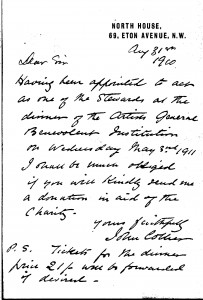 NORTH HOUSE,
69, ETON AVENUE, N.W.
Aug 31st
1910
Dear Sir
Having been appointed to act
as one of the Stewards at the
dinner of the Artists General
Benevolent Institution
on Wednesday May 3rd 1911
I shall be much obliged
if you will kindly send me
a donation in aid of the
Charity.
Yours faithfully
John Collier
P.S. Tickets for the dinner
price 21/- will be forwarded
if desired.